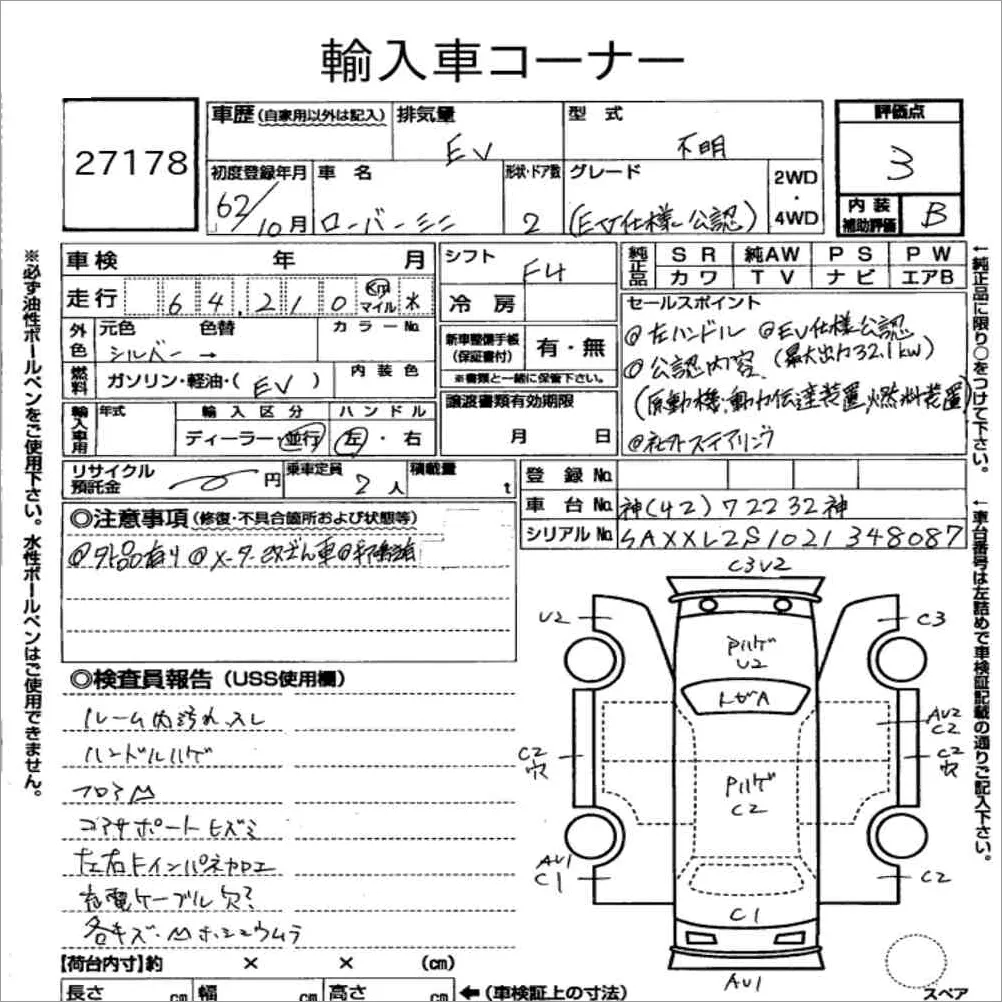 輸入車コーナー
27178
車歴 (自家用以外は記入)
排気量
EV
型式
不明
評価点
3
初度登録年月
62/10月
車名
ローバーミニ
形状・ドア数
2
グレード
(EV仕様公認)
2WD
・
4WD
内装
補助評価
B
車検 年 月
走行 64,210 Km マイル
シフト
F4
冷房
純正品
SR 純AW PS PW
カワ TV ナビ エアB
外色
元色 色替
シルバー →
カラーNo.
燃料
ガソリン・軽油・( EV )
内装色
新車整備手帳
(保証書付)
有・無
※書類と一緒に保管下さい。
セールスポイント
@左ハンドル @EV仕様公認
@公認内容 (最大出力32.1kw)
(原動機,動力伝達装置,燃料装置)
@社外ステアリング
輸入車用
年式
輸入区分
ディーラー・並行
ハンドル
左・右
譲渡書類有効期限
月 日
リサイクル
預託金
円
乗車定員
2人
積載量
t
登録No.
車台No.
神(42)72232神
シリアルNo.
SAXXL2S1021348087
◎注意事項 (修復・不具合箇所および状態等)
@メーター改ざん車
◎検査員報告 (USS使用欄)
ルーム内汚れ.スレ
ハンドルハゲ
フロア
コアサポートヒズミ
左右ドインパネカロエ
充電ケーブル欠
各キズ・ホシュウムラ
C3U2
U2
C3
Pハゲ
U2
トビA
AU2
C2
C2
穴
C2
穴
Pハゲ
C2
AU1
C1
C2
C1
AU1
スペア
【荷台内寸】約 × × (cm)
長さ cm 幅 cm 高さ cm ←(車検証上の寸法)
※必ず油性ボールペンをご使用下さい。水性ボールペンはご使用できません。
←純正品に限り○をつけて下さい。
←車台番号は左詰めで車検証記載の通りご記入下さい。